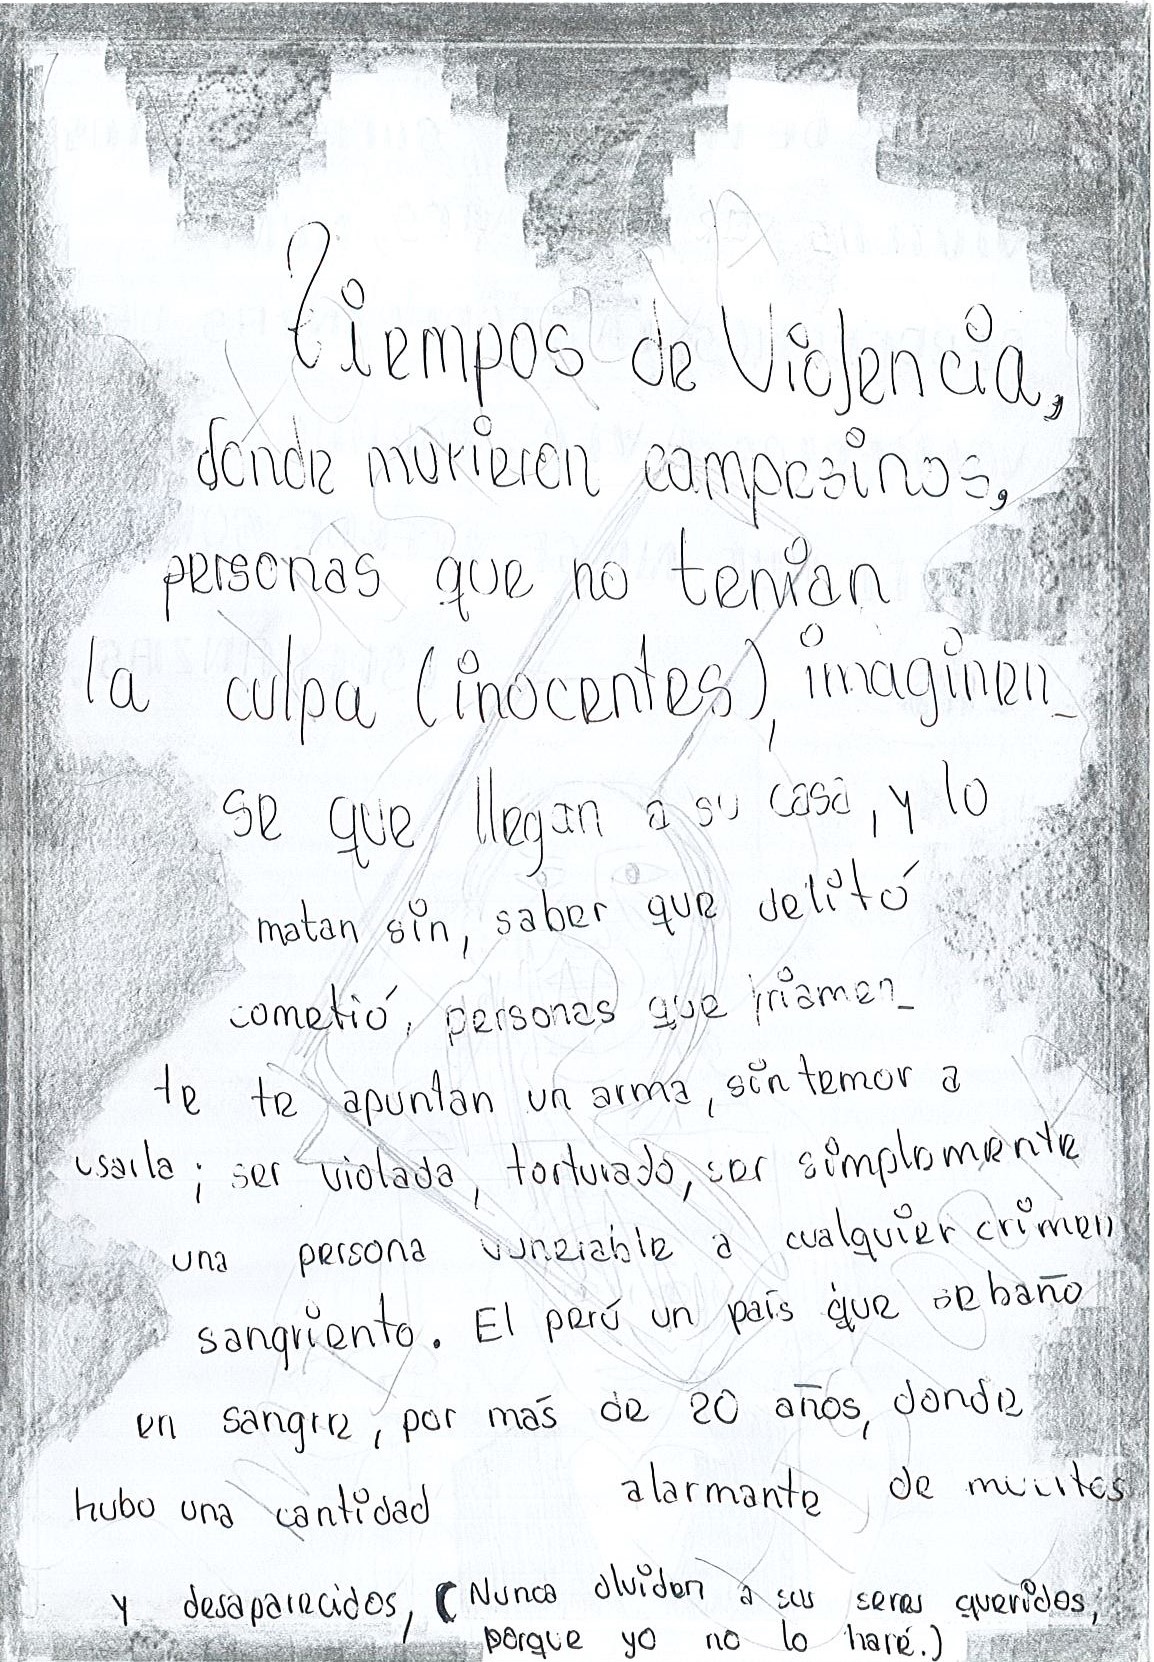 Tiempos de Violencia,
donde murieron campesinos,
personas que no tenían
la culpa (inocentes), imaginen_
se que llegan a su casa, y lo
matan sin, saber que delitó
cometió, personas que friamen_
te te apuntan un arma, sin temor a
usarla; ser violada, torturado, ser simplemente
una persona vunerable a cualquier crimen
sangriento. El perú un país que se baño
en sangre, por más de 20 años, donde
hubo una cantidad alarmante de muertos
y desaparecidos, (Nunca olviden a sus seres queridos,
porque yo no lo haré.)